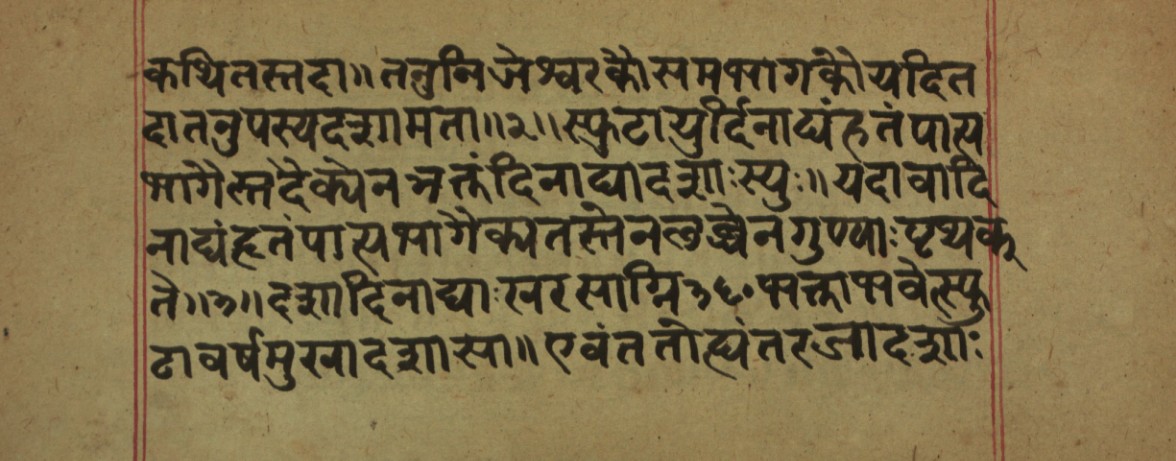 कथितस्तदा॥ तनुनिजेश्वरकौ समभागकौ यदि त
दा तनुपस्य दशा मता॥२॥ स्फुटायुर्दिनाद्यं हतं पात्य
भागैस्तदैक्येन भक्तं दिनाद्या दशाः स्युः॥ यदा वा दि
नाद्यं हृतं पात्यभागैक्यतस्तेन लब्धेन गुण्याः पृथक्
ते॥३॥ दशादिनाद्याः खरसाग्नि३६०भक्ता भवेत्स्फु
टा वर्षमुखा दशा सा॥ एवं ततोह्यंतरजा दशाः